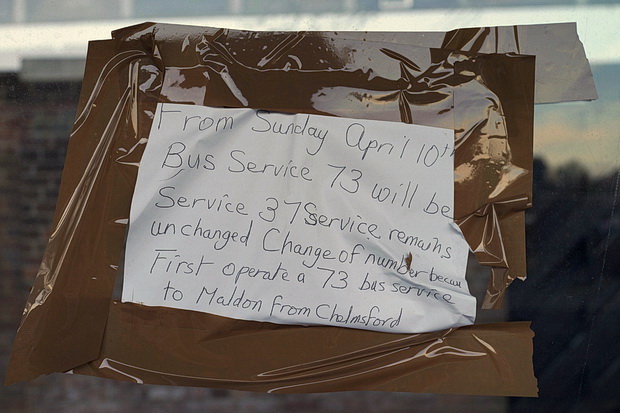 From Sunday April 10th
Bus Service 73 will be
Service 37 Service remains
unchanged Change of number becau
First operate a 73 bus service
to Maldon from Chelmsford